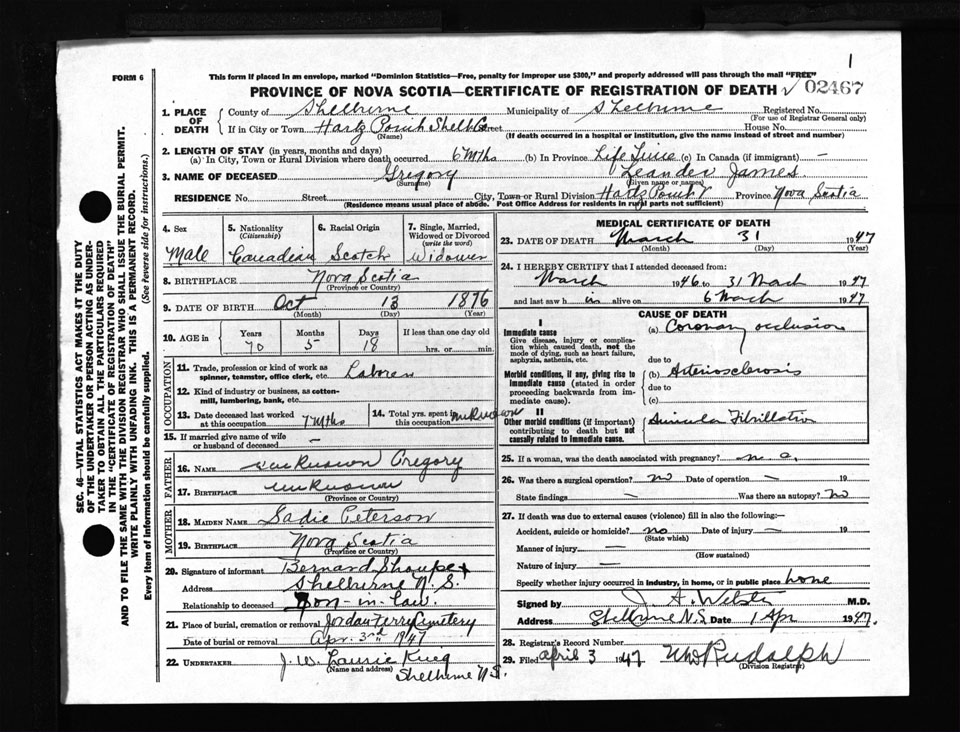 1
FORM 6
This form if placed in an envelope, marked "Dominion Statistics—Free, penalty for improper use $300," and properly addressed will pass through the mail "FREE"
PROVINCE OF NOVA SCOTIA—CERTIFICATE OF REGISTRATION OF DEATH √ 02467
1. PLACE OF DEATH County of Shelburne Municipality of Shelburne Registered No.
(For use of Registrar General only)
If in City or Town Hartz Point Shelb Street House No.
(Name) (If death occurred in a hospital or institution, give the name instead of street and number)
2. LENGTH OF STAY (in years, months and days)
(a) In City, Town or Rural Division where death occurred 6 Mths (b) In Province Life Time (c) In Canada (if immigrant) —
3. NAME OF DECEASED Gregory Leander James
(Surname) (Given name or names)
RESIDENCE No. Street City, Town or Rural Division Hartz Point Province Nova Scotia
(Residence means usual place of abode. Post Office Address for residents in rural parts not sufficient)
4. Sex Male
5. Nationality (Citizenship) Canadian
6. Racial Origin Scotch
7. Single, Married, Widowed or Divorced (write the word) Widower
8. BIRTHPLACE Nova Scotia
(Province or Country)
9. DATE OF BIRTH Oct 13 1876
(Month) (Day) (Year)
10. AGE in Years Months Days If less than one day old
70 5 18 hrs. or min.
OCCUPATION
11. Trade, profession or kind of work as spinner, teamster, office clerk, etc. Laborer
12. Kind of industry or business, as cotton-mill, lumbering, bank, etc.
13. Date deceased last worked at this occupation 7 Mths
14. Total yrs. spent in this occupation unknown
15. If married give name of wife or husband of deceased —
FATHER
16. NAME unknown Gregory
17. BIRTHPLACE unknown
(Province or Country)
MOTHER
18. MAIDEN NAME Sadie Peterson
19. BIRTHPLACE Nova Scotia
(Province or Country)
20. Signature of informant Bernard
Address Shelburne N.S.
Relationship to deceased Son-in-law.
21. Place of burial, cremation or removal Jordan Ferry Cemetery
Date of burial or removal Apr. 3rd 1947
22. UNDERTAKER J. W. Laurie King
(Name and address) Shelburne N.S.
MEDICAL CERTIFICATE OF DEATH
23. DATE OF DEATH March 31 1947
(Month) (Day) (Year)
24. I HEREBY CERTIFY that I attended deceased from:
March 1946 to 31 March 1947
and last saw h im alive on 6 March 1947
CAUSE OF DEATH
I
Immediate cause
Give disease, injury or complication which caused death, not the mode of dying, such as heart failure, asphyxia, asthenia, etc.
(a) Coronary occlusion
due to
Morbid conditions, if any, giving rise to immediate cause (stated in order proceeding backwards from immediate cause).
(b) Arteriosclerosis
due to
(c)
II
Other morbid conditions (if important) contributing to death but not causally related to immediate cause.
Auricular Fibrillation
25. If a woman, was the death associated with pregnancy? n.a.
26. Was there a surgical operation? no Date of operation — 19
State findings — Was there an autopsy? No
27. If death was due to external causes (violence) fill in also the following:—
Accident, suicide or homicide? no Date of injury — 19
(State which)
Manner of injury —
(How sustained)
Nature of injury —
Specify whether injury occurred in industry, in home, or in public place home
Signed by J. A. M.D.
Address Shelburne N.S. Date 1 Apr 1947.
28. Registrar's Record Number
29. Filed April 3 1947 Rudolph
(Division Registrar)
SEC. 46—VITAL STATISTICS ACT MAKES IT THE DUTY
OF THE UNDERTAKER OR PERSON ACTING AS UNDER-
TAKER TO OBTAIN ALL THE PARTICULARS REQUIRED
IN THE "CERTIFICATE OF REGISTRATION OF DEATH"
AND TO FILE THE SAME WITH THE DIVISION REGISTRAR WHO SHALL ISSUE THE BURIAL PERMIT.
WRITE PLAINLY WITH UNFADING INK. THIS IS A PERMANENT RECORD.
Every item of information should be carefully supplied. (See reverse side for instructions.)